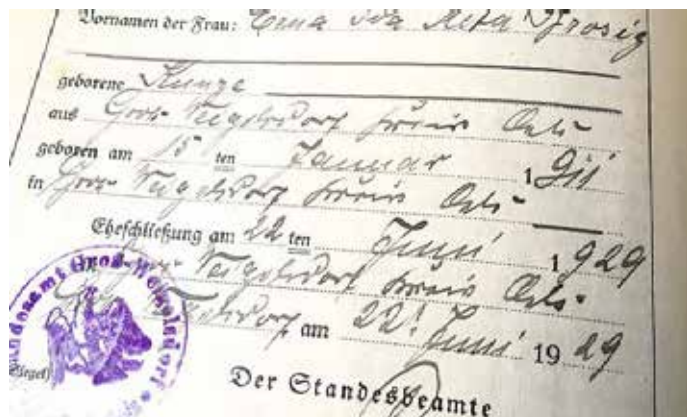 Vornamen der Frau: Erna Ida Meta Frosig
geborene Kunze
aus Gross Weigelsdorf Kreis Oels
geboren am 15 ten Januar 1911
in Gross Weigelsdorf Kreis Oels
Eheschließung am 22 ten Juni 1929
Gross Weigelsdorf Kreis Oels
Weigelsdorf am 22. Juni 1929
Der Standesbeamte
Standesamt Gross-Weigelsdorf
(Siegel)